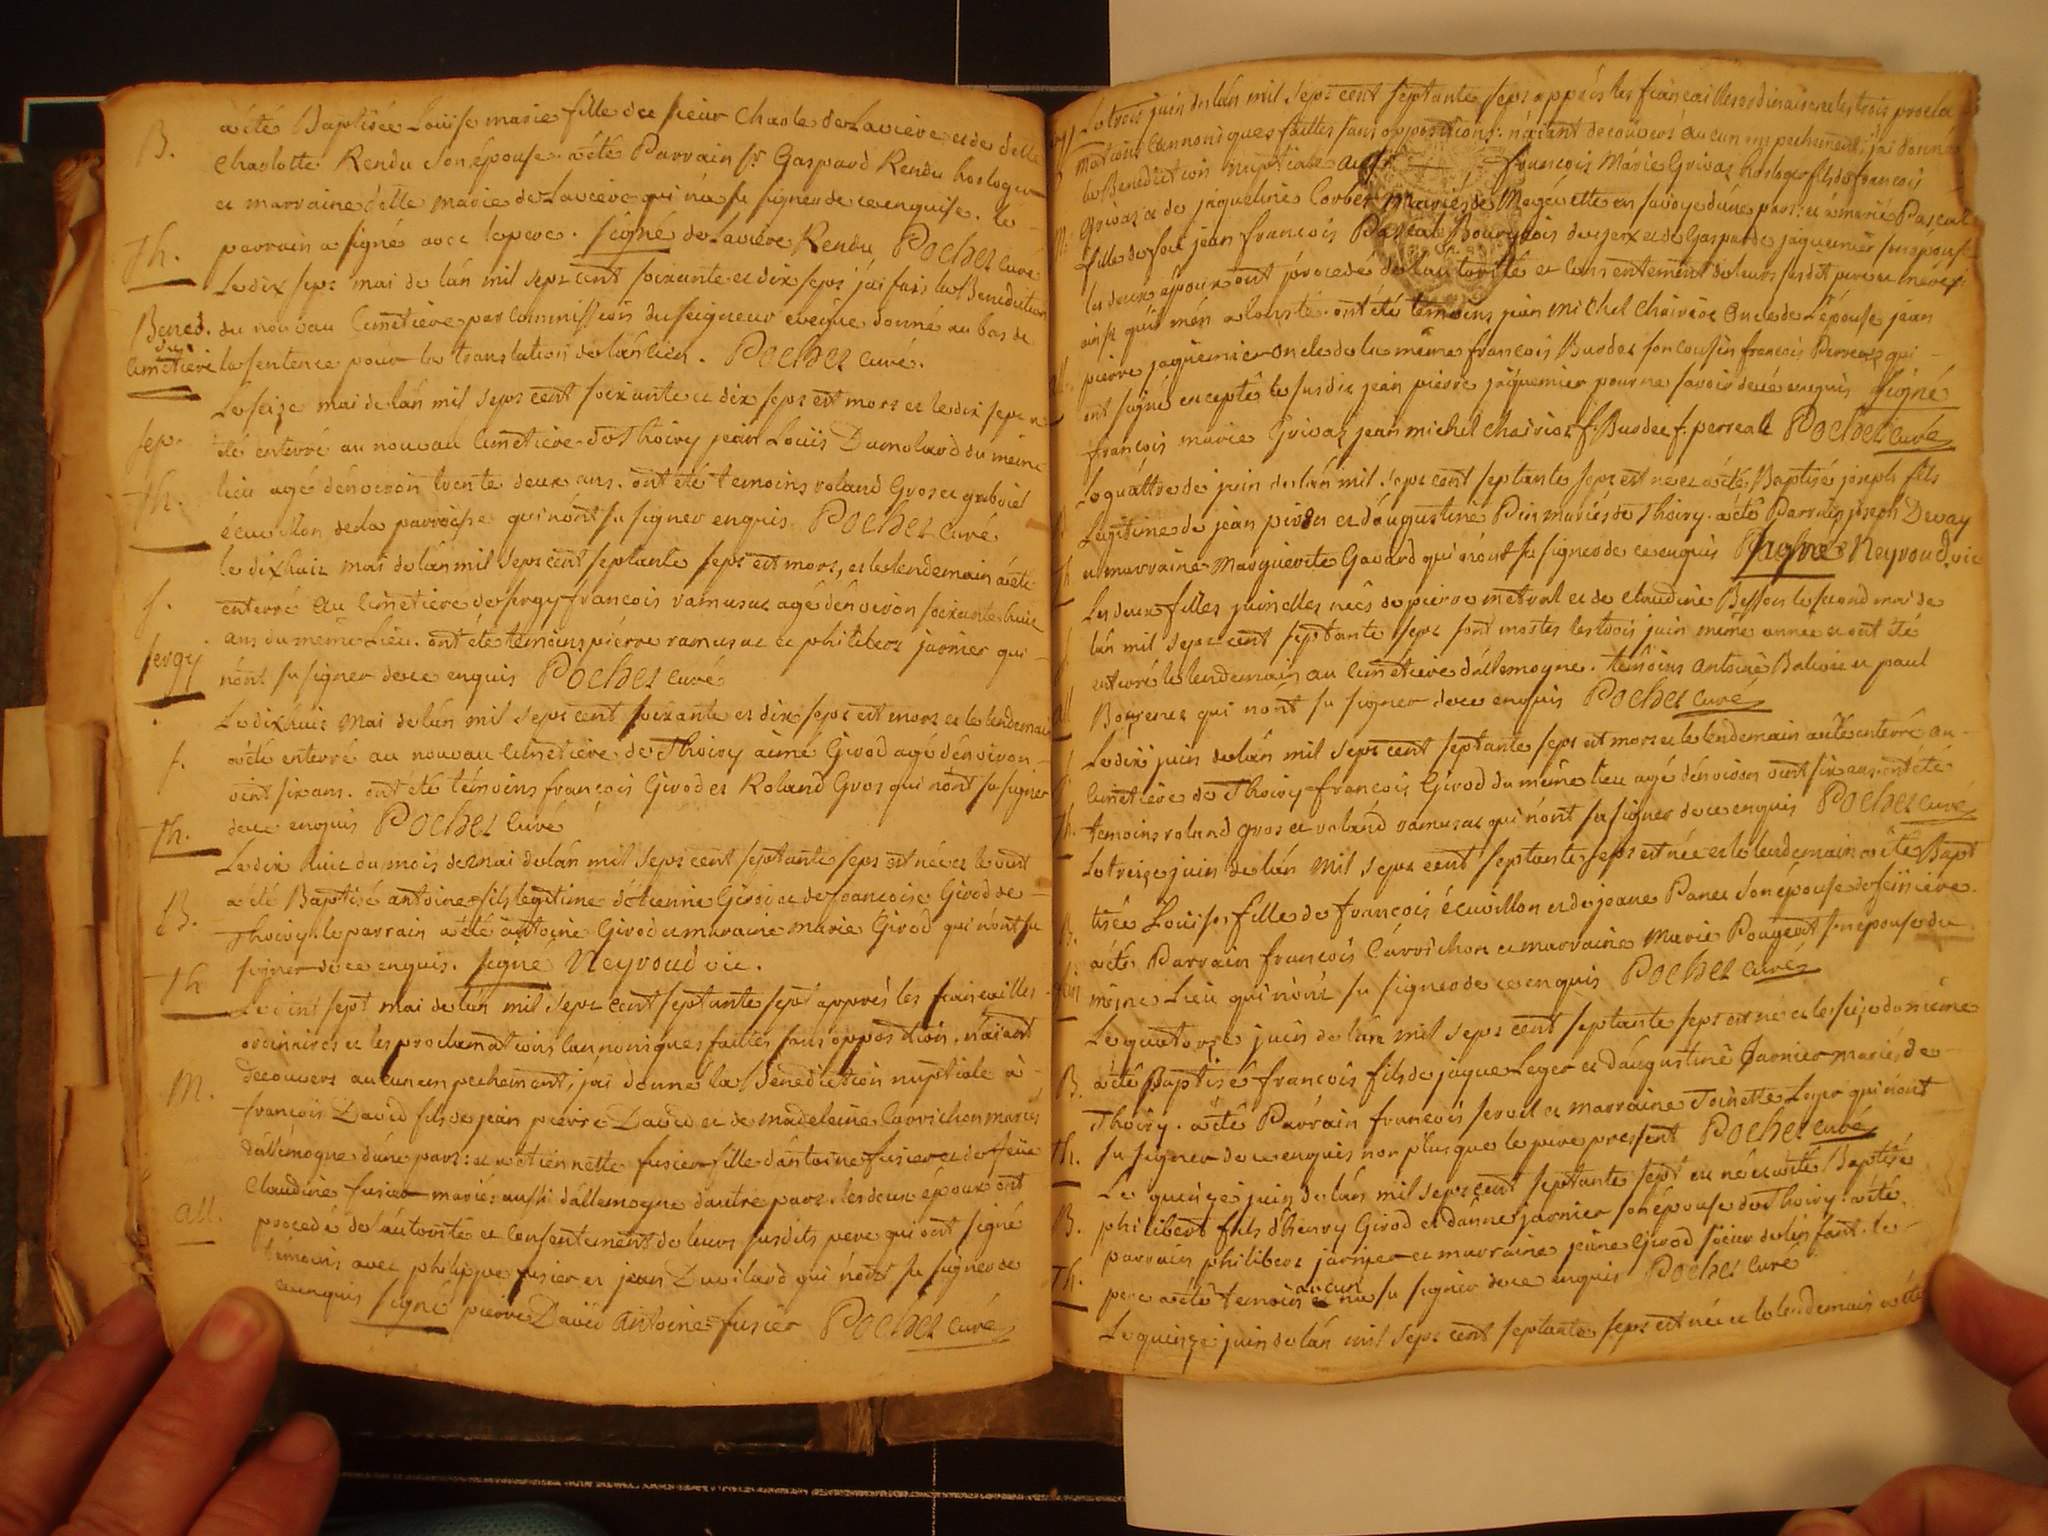 B.
a été Baptisée Louise marie fille de sieur Charle de Laviere et de delle
Charlotte Rendu son épouse. a été Parrain sr. Gaspard Rendu horloger
et marraine delle marie de Laviere qui n'a su signer de ce enquise. le
Th.
parrain a signé avec le pere. signé de Laviere Rendu Pochet curé
Le dix sept mai de lán mil sept cent soixante et dix sept j'ai fais la Benediction
Bened. du nouveau cimetiere par commission du seigneur eveque donné au bas de
du
cimetiere la sentence pour la translation de láncien. Pochet curé.
Le seize mai de lán mil sept cent soixante et dix sept est mort et le dix sept a
sep.
été enterré au nouveau cimetiere de Thoiry jean Louis Dumolard du même
Th.
lieu agé dénviron trente deux ans. ont été temoins roland Gros et gabriel
écuvillon de la parroisse qui nónt su signer enquis Pochet curé
le dixhuit mai de lán mil sept cent septante sept est mort, et le lendemain a été
s.
enterré au cimetiere de sergy francois ramusat agé dénviron soixante huit
ans du même Lieu. ont été temoins piérre ramusat et philibert jarnier qui
sergy
nónt su signer de ce enquis Pochet curé
Le dixhuit mai de lán mil sept cent soixante et dix sept est mort et le lendemain
s.
a été enterré au nouveau cimetiere de Thoiry aimé Girod agé dénviron
vint six ans. ont été témoins françois Girod et Roland Gros qui nónt su signer
Th.
de ce enquis Pochet curé
Le dix huit du mois de mai de lán mil sept cent septante sept est né et le vint
B.
a été Baptisé antoine fils legitime d'étienne Girod et de francoise Girod de
Thoiry. le parrain a été antoine Girod et maraine marie Girod qui nónt su
Th
signer de ce enquis. signé Neyroud vic.
Le vint sept mai de lán mil sept cent septante sept apprés les fiancailles
ordinaires et les proclamations cannoniques faittes sans opposition. n'aiant
M.
decouvert aucun empechement, j'ai donné la Benediction nuptiale à
françois David fils de jean pierre David et de madeleine Carrichon mariés
dállémogne dúne part: et a étiennette fusier fille dántoine fusier et de feüe
Claudine fusier mariés aussi dállemogne dautre part. les deux époux ont
all.
procedé de láutorité et consentement de leurs susdits pere qui ont signé
témoins avec philippe fusier et jean Duvilard qui nónt su signer de
ce enquis signé pierre David antoine fusier Pochet curé
Le trois juin de lán mil sept cent septante sept apprés les fiancailles ordinaires et les trois procla
mations cannoniques faittes sans oppositions: n'áiant decouvert aucun empechement, j'ai donné
la Benediction nuptiale au sr. francois Marie Grivaz horloger fils de francois
M.
Grivaz et de jaqueline Corbet mariés de Megevette en savoye dúne part: et a marie Pascal
fille de feu jean francois Pascal Bourgeois de gex et de Gasparde jaquemier son epouse
les deux époux ont procedé de láutorité et consentement de leurs susdit pere et mere
ainsi qu'il m'en a consté. ont été temoins jean michel chairiot oncle de l'épouse jean
pierre jaquemier oncle de la même francois Burdet son cousin francois Perreal qui
ont signé excepté le susdit jean pierre jaquemier pour ne savoir de ce enquis signé
francois marie Grivaz jean michel chairiot f. Burdet f. perreal Pochet curé
Le quattre de juin de lán mil sept cent septante sept est né et a été Baptisé joseph fils
Legitime de jean et dáugustine Pin mariés de Thoiry. a été Parrain joseph Devay
Th
et marraine Marguerite Gavard qui nónt su signer de ce enquis signé Neyroud vic
Les deux filles jumelles nées de pierre metral et de Claudine Besson le second mai de
lán mil sept cent septante sept sont mortes les trois juin même année et ont été
enterré le lendemain au cimétiere dállemogne. témoins antoine Balivée et paul
all
Bourenet qui nónt su signer de ce enquis Pochet curé
Le dix juin de lán mil sept cent septante sept est mort et le lendemain a été enterré au
cimetiere de Thoiry francois Girod du même lieu agé dénviron vint six ans. ont été
Th.
temoins roland gros et roland ramusat qui nónt su signer de ce enquis Pochet curé
Le treize juin de lán mil sept cent septante sept est née et le lendemain a été Bapt
B.
tisée Louise fille de francois écuvillon et de jeane Panet son épouse de
a été Parrain francois Carrichon et marraine Marie Pougeat son épouse du
même Lieu qui nónt su signer de ce enquis Pochet curé
Le quatorze juin de lán mil sept cent septante sept est né et le seize du même
B.
a été Baptisé francois fils de jaque Leger et dáugustine Jarnier mariés de
Thoiry. a été Parrain francois servel et marraine Toinette Leger qui nónt
Th.
su signer de ce enquis non plus que le pere present Pochet curé
Le quinze juin de lán mil sept cent septante sept est né et a été Baptisé
B.
philibert fils d'henry Girod et dánne jarnier son épouse de Thoiry. a été
parrain philibert jarnier et marraine jeane Girod soeur de lénfant. le
aucun
Th.
pere a été temoin ne su signer de ce enquis Pochet curé
Le quinze juin de lán mil sept cent septante sept est née et le lendemain a été